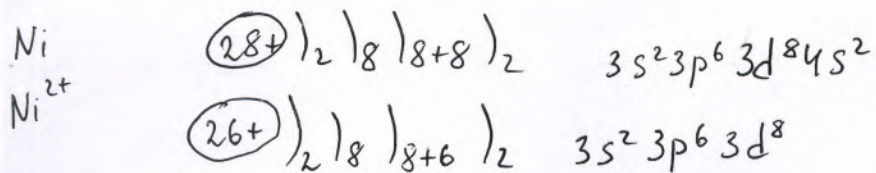 Ni 28+ )₂ )₈ )₈₊₈ )₂ 3s²3p⁶3d⁸4s²
Ni²⁺ 26+ )₂ )₈ )₈₊₆ )₂ 3s²3p⁶3d⁸